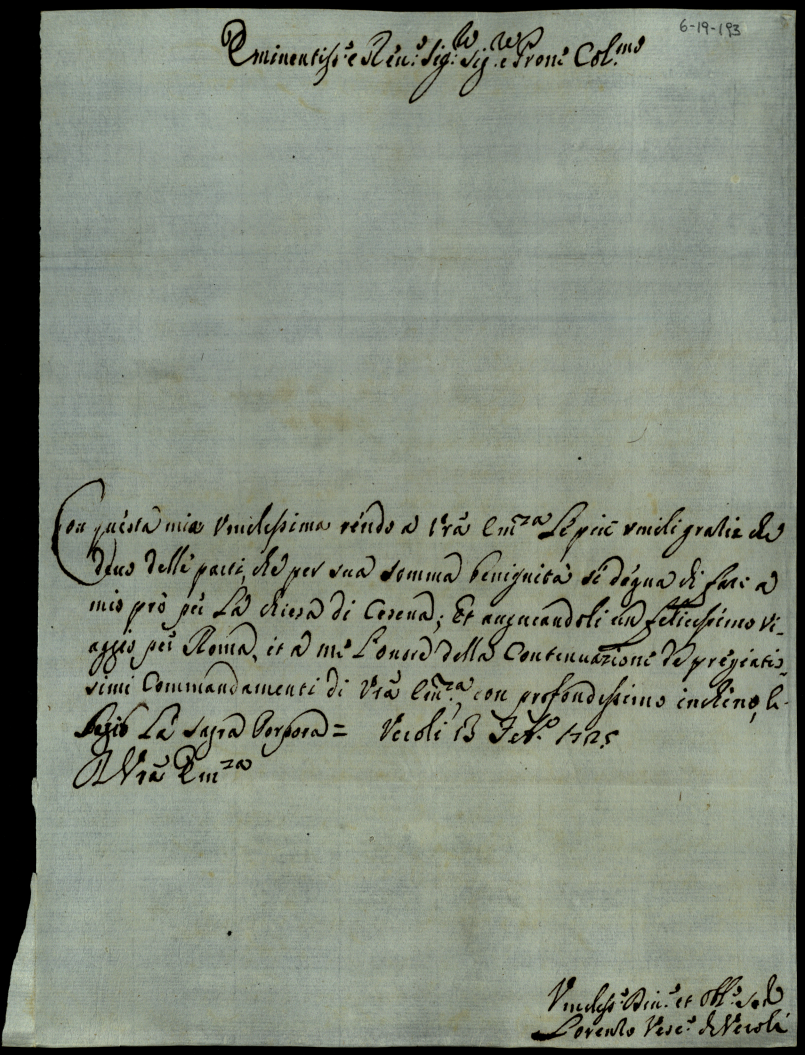 6-19-193
Eminentiss.e e Reu: Sig: Sig: e Prone Col.mo
Con questa mia vmilissima rendo a Vra Emza Le più vmili gratie che
deuo delle parti, che per sua somma benignità si degna di fare a
mio prò per La chiesa di Cesena; Et augurandoli un felicissimo vi-
aggio per Roma, et a me L'onore della Continuazione de pregiatis-
simi Commandamenti di Vra Emza, con profondissimo inchino, le
bagio La sagra Porpora = Veroli 13 Feb.o 1725
D Vra Emza
Vmiliss: Diu: et obl: Ser
Lorenzo Vesc: di Veroli